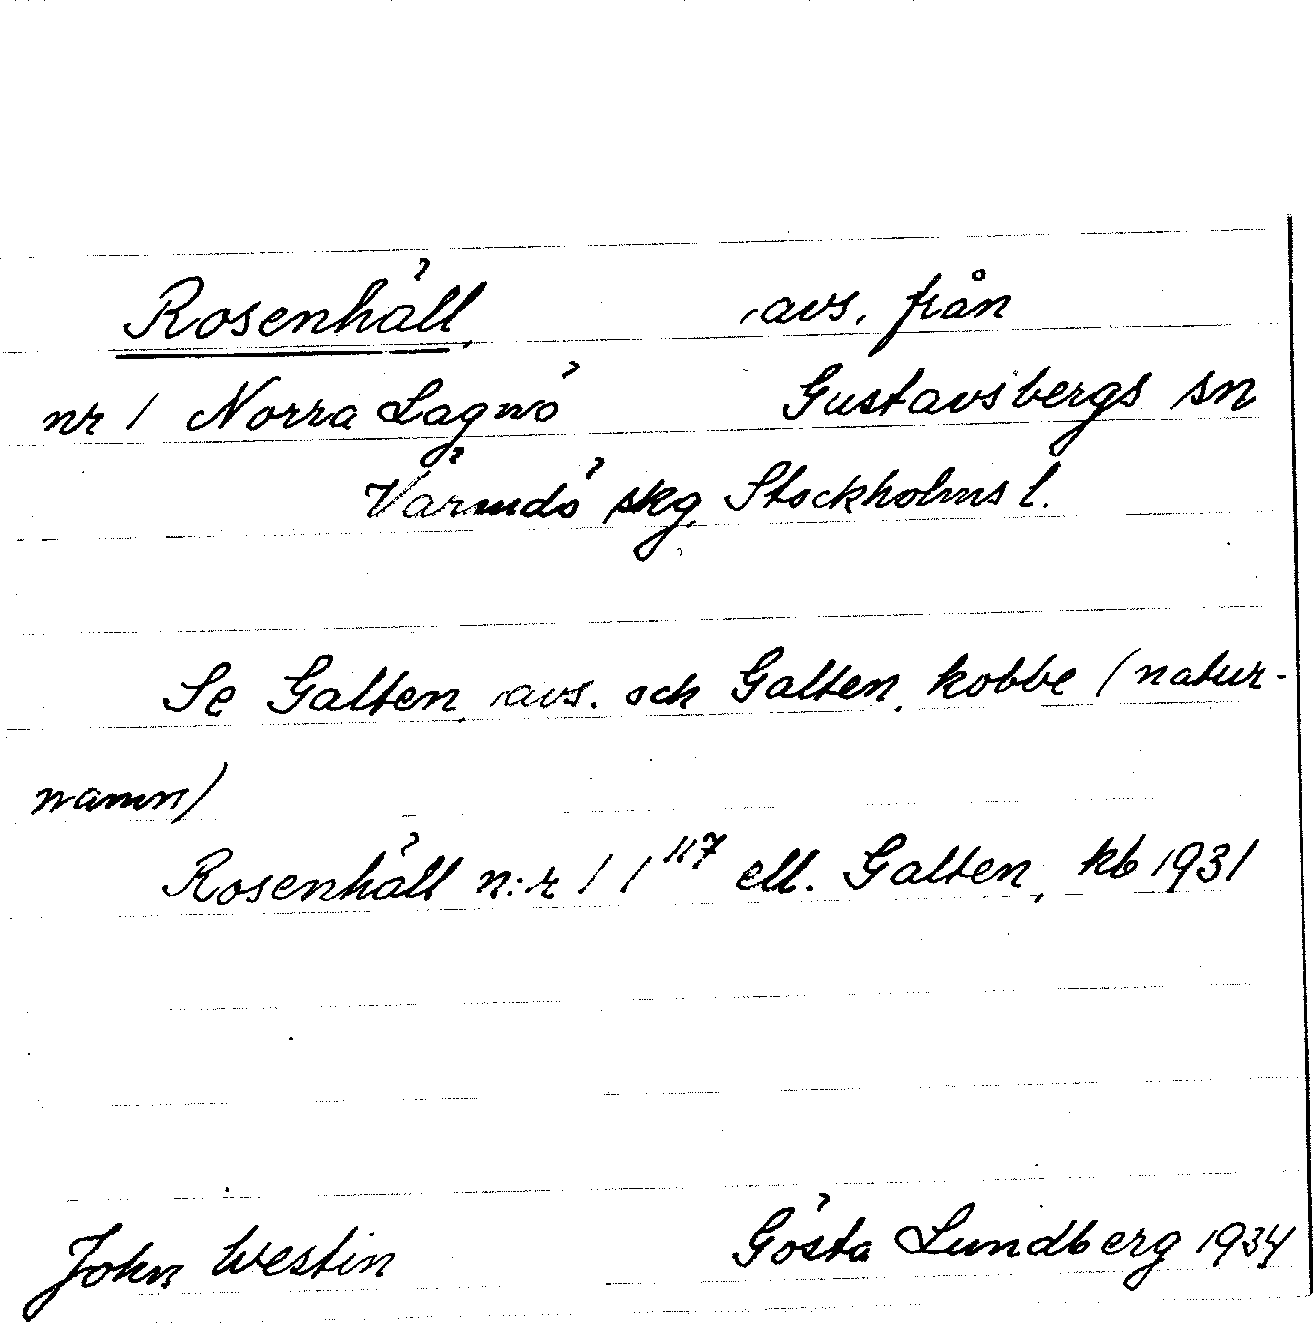 Rosenhäll, avs. från
nr 1 Norra Lagnö Gustavsbergs sn
Värmdö skg Stockholms l.
Se Galten, avs. och Galten, kobbe (natur-
namn)
Rosenhäll n:r 1 1¹¹⁷ ell. Galten, kb 1931
John Westin Gösta Lundberg 1934